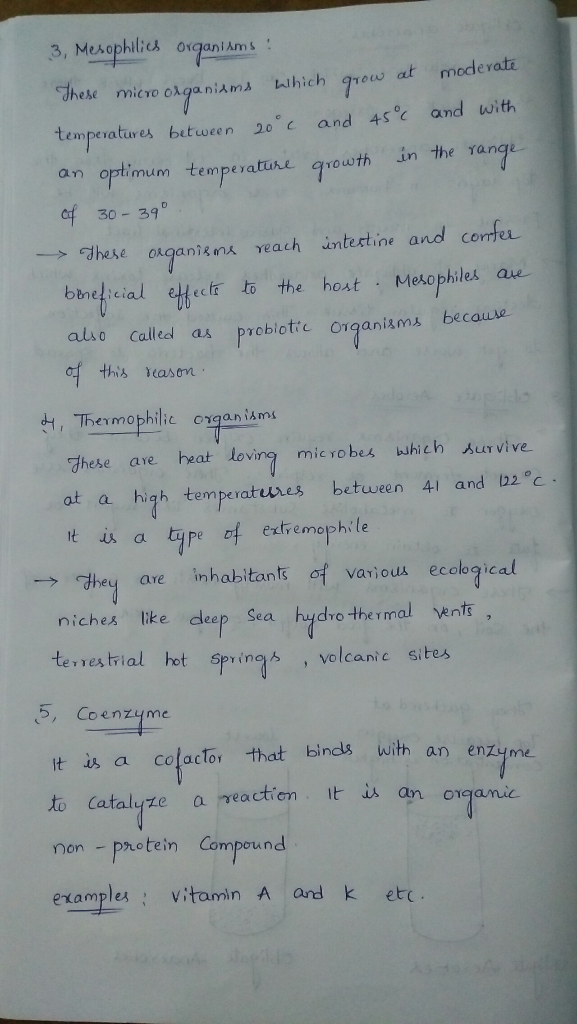 3, Mesophilics organisms :
These micro organisms which grow at moderate
temperatures between 20°c and 45°c and with
an optimum temperature growth in the range
of 30 - 39°
→ These organisms reach intestine and confer
beneficial effects to the host . Mesophiles are
also called as probiotic organisms because
of this reason .
4, Thermophilic organisms
These are heat loving microbes which survive
at a high temperatures between 41 and 122°c .
It is a type of extremophile
→ They are inhabitants of various ecological
niches like deep sea hydrothermal vents ,
terrestrial hot springs , volcanic sites
5, Coenzyme
It is a cofactor that binds with an enzyme
to catalyze a reaction . It is an organic
non - protein Compound
examples : vitamin A and K etc .